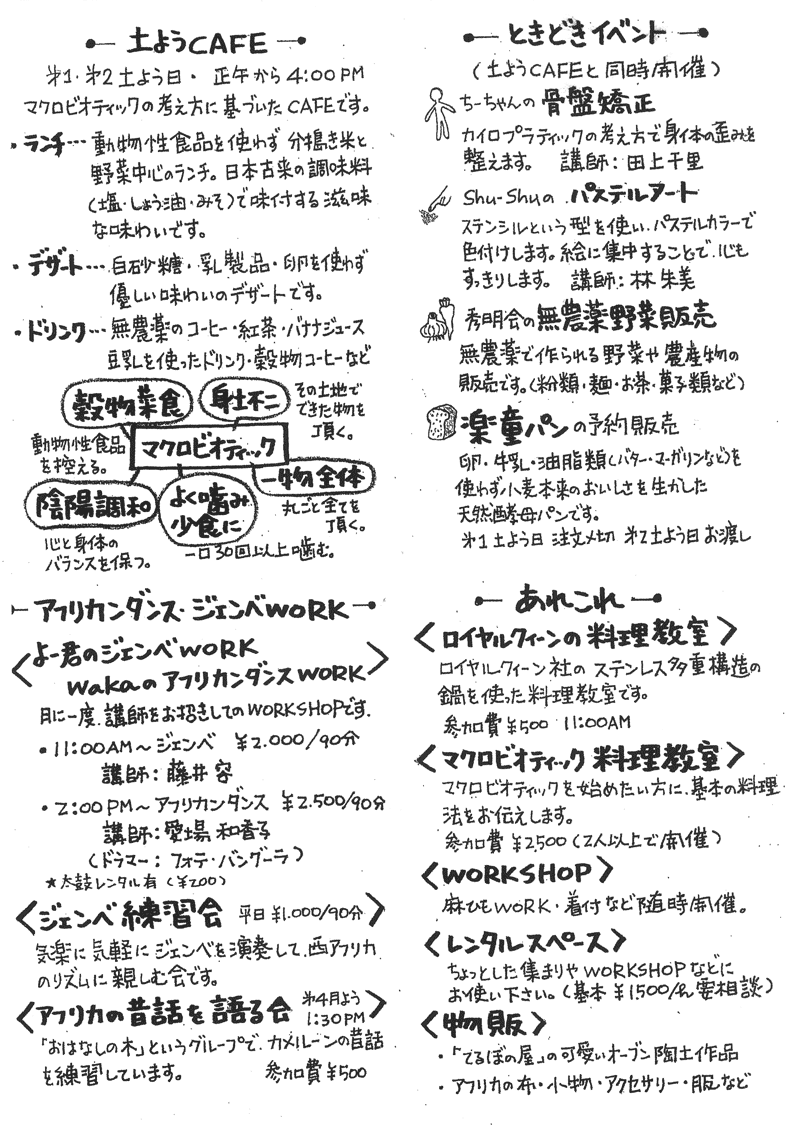 土ようCAFE
第1・第2土よう日・ 正午から4:00PM
マクロビオティックの考え方に基づいたCAFEです。
・ランチ… 動物性食品を使わず 分搗き米と
野菜中心のランチ。日本古来の調味料
(塩・しょう油・みそ)で味付する滋味
な味わいです。
・デザート… 白砂糖・乳製品・卵を使わず
優しい味わいのデザートです。
・ドリンク… 無農薬のコーヒー・紅茶・バナナジュース
豆乳を使ったドリンク・穀物コーヒーなど
穀物菜食
身土不二
その土地で
できた物を
頂く。
動物性食品
を控える。
マクロビオティック
一物全体
丸ごと全てを
頂く。
陰陽調和
心と身体の
バランスを保つ。
よく噛み
少食に
一口30回以上噛む。
アフリカンダンス・ジェンベWORK
〈よー君のジェンベWORK
wakaのアフリカンダンスWORK〉
月に一度、講師をお招きしてのWORKSHOPです。
・11:00AM〜ジェンベ ¥2.000/90分
講師:藤井 容
・2:00PM〜アフリカンダンス ¥2.500/90分
講師:愛場 和香子
(ドラマー: フォデ・バングーラ)
★太鼓レンタル有(¥200)
〈ジェンベ練習会 平日¥1.000/90分〉
気楽に気軽にジェンベを演奏して、西アフリカ
のリズムに親しむ会です。
〈アフリカの昔話を語る会 第4月よう 1:30PM〉
「おはなしの木」というグループで、カメルーンの昔話
を練習しています。 参加費¥500
ときどきイベント
(土ようCAFEと同時開催)
ちーちゃんの 骨盤矯正
カイロプラティックの考え方で身体の歪みを
整えます。 講師:田上千里
Shu-Shuの パステルアート
ステンシルという型を使い、パステルカラーで
色付けします。絵に集中することで、心も
すっきりします。 講師:林 朱美
秀明会の無農薬野菜販売
無農薬で作られる野菜や農産物の
販売です。(粉類・麺・お茶・菓子類など)
楽童パンの予約販売
卵・牛乳・油脂類(バター・マーガリンなど)を
使わず小麦本来のおいしさを生かした
天然酵母パンです。
第1土よう日 注文〆切 第2土よう日お渡し
あれこれ
〈ロイヤルクィーンの料理教室〉
ロイヤルクィーン社の ステンレス多重構造の
鍋を使った料理教室です。
参加費¥500 11:00AM
〈マクロビオティック料理教室〉
マクロビオティックを始めたい方に、基本の料理
法をお伝えします。
参加費 ¥2500(2人以上で開催)
〈WORKSHOP〉
麻ひもWORK・着付など随時開催。
〈レンタルスペース〉
ちょっとした集まりやWORKSHOPなどに
お使い下さい。(基本 ¥1500/h 要相談)
〈物販〉
・「てるぼの屋」の可愛いオーブン陶土作品
・アフリカの布・小物・アクセサリー・服など